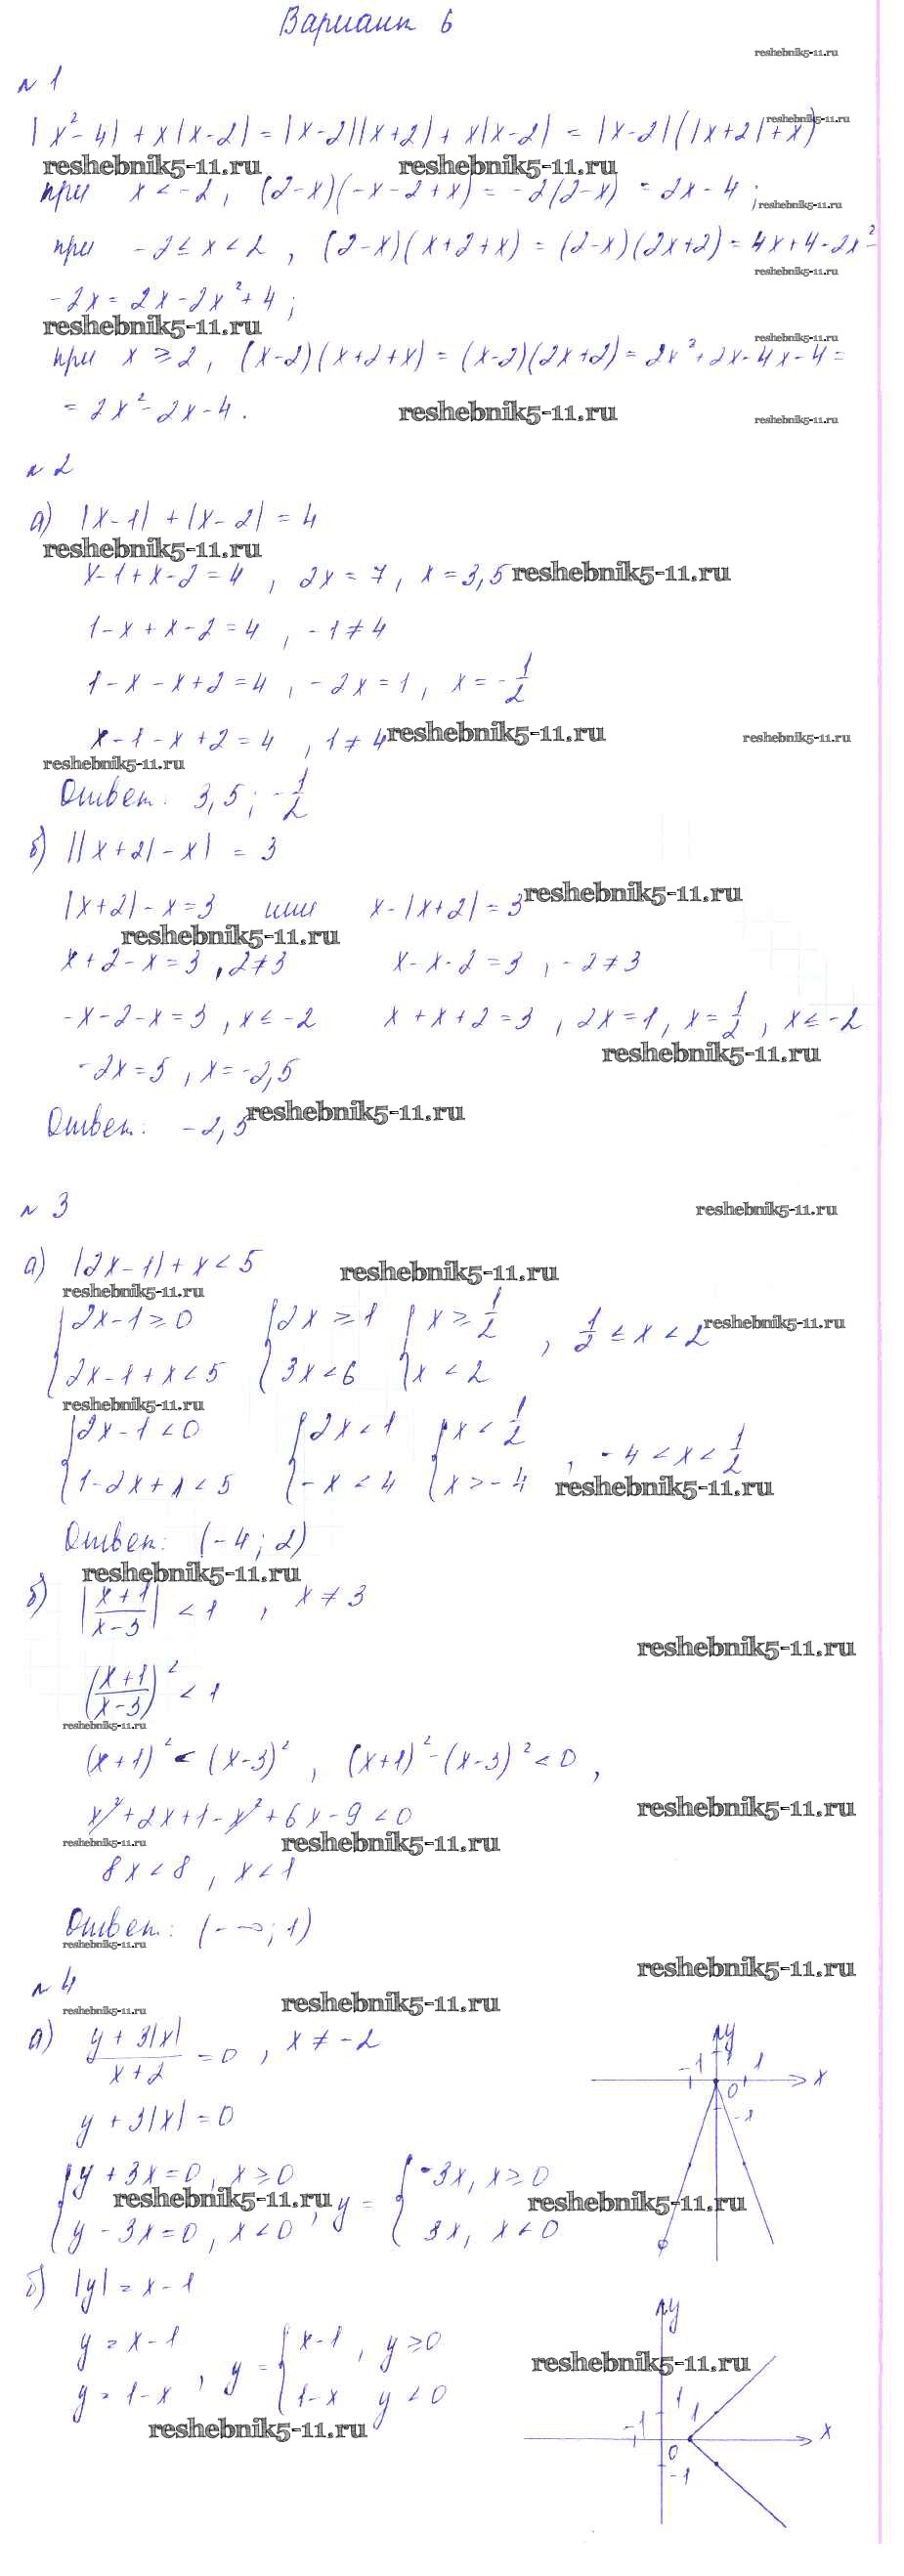 Вариант 6
reshebnik5-11.ru
№ 1
|x² - 4| + x|x - 2| = |x - 2||x + 2| + x|x - 2| = |x - 2|(|x + 2| + x)
reshebnik5-11.ru
reshebnik5-11.ru reshebnik5-11.ru
при x < -2, (2 - x)(-x - 2 + x) = -2(2 - x) = 2x - 4;
reshebnik5-11.ru
при -2 ≤ x < 2, (2 - x)(x + 2 + x) = (2 - x)(2x + 2) = 4x + 4 - 2x² -
reshebnik5-11.ru
- 2x = 2x - 2x² + 4;
reshebnik5-11.ru
reshebnik5-11.ru
при x ≥ 2, (x - 2)(x + 2 + x) = (x - 2)(2x + 2) = 2x² + 2x - 4x - 4 =
= 2x² - 2x - 4.
reshebnik5-11.ru reshebnik5-11.ru
№ 2
а) |x - 1| + |x - 2| = 4
reshebnik5-11.ru
x - 1 + x - 2 = 4, 2x = 7, x = 3,5 reshebnik5-11.ru
1 - x + x - 2 = 4, -1 ≠ 4
1 - x - x + 2 = 4, -2x = 1, x = -1/2
x - 1 - x + 2 = 4, 1 ≠ 4 reshebnik5-11.ru reshebnik5-11.ru
reshebnik5-11.ru
Ответ: 3,5; -1/2
б) ||x + 2| - x| = 3
|x + 2| - x = 3 или x - |x + 2| = 3 reshebnik5-11.ru
reshebnik5-11.ru
x + 2 - x = 3, 2 ≠ 3 x - x - 2 = 3, -2 ≠ 3
-x - 2 - x = 3, x ≤ -2 x + x + 2 = 3, 2x = 1, x = 1/2, x ≤ -2
reshebnik5-11.ru
-2x = 5, x = -2,5
Ответ: -2,5 reshebnik5-11.ru
№ 3
reshebnik5-11.ru
а) |2x - 1| + x < 5
reshebnik5-11.ru
reshebnik5-11.ru
{2x - 1 ≥ 0 {2x ≥ 1 {x ≥ 1/2 , 1/2 ≤ x < 2 reshebnik5-11.ru
2x - 1 + x < 5 3x < 6 x < 2
reshebnik5-11.ru
{2x - 1 < 0 {2x < 1 {x < 1/2 , -4 < x < 1/2
1 - 2x + x < 5 -x < 4 x > -4 reshebnik5-11.ru
Ответ: (-4; 2)
reshebnik5-11.ru
б) |(x + 1)/(x - 3)| < 1, x ≠ 3
reshebnik5-11.ru
((x + 1)/(x - 3))² < 1
reshebnik5-11.ru
(x + 1)² < (x - 3)², (x + 1)² - (x - 3)² < 0,
reshebnik5-11.ru
x² + 2x + 1 - x² + 6x - 9 < 0
reshebnik5-11.ru reshebnik5-11.ru
8x < 8, x < 1
Ответ: (-∞; 1)
reshebnik5-11.ru
reshebnik5-11.ru
№ 4
reshebnik5-11.ru reshebnik5-11.ru
а) (y + 3|x|)/(x + 2) = 0, x ≠ -2
y
-1 1 1 x
0
-1
y + 3|x| = 0
{y + 3x = 0, x ≥ 0 , y = {-3x, x ≥ 0
reshebnik5-11.ru reshebnik5-11.ru
y - 3x = 0, x < 0 3x, x < 0
б) |y| = x - 1
y
y = x - 1 , y = {x - 1, y ≥ 0
reshebnik5-11.ru
y = 1 - x 1 - x y < 0
reshebnik5-11.ru
-1 1 1 x
0
-1